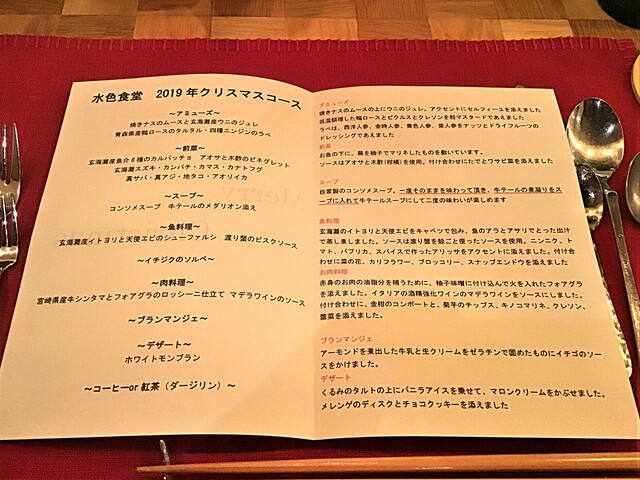 水色食堂　2019年クリスマスコース
～アミューズ～
焼きナスのムースと玄海灘産ウニのジュレ
青森県産鴨ロースのタルタル・四種ニンジンのラペ
～前菜～
玄海灘産魚介8種のカルパッチョ　アオサと木酢のビネグレット
玄海灘スズキ・カンパチ・カマス・カナトフグ
真サバ・真アジ・地タコ・アオリイカ
～スープ～
コンソメスープ　牛テールのメダリオン添え
～魚料理～
玄海灘産イトヨリと天使エビのシューファルシ　渡り蟹のビスクソース
～イチジクのソルベ～
～肉料理～
宮崎県産牛シンタマとフォアグラのロッシーニ仕立て　マデラワインのソース
～ブランマンジェ～
～デザート～
ホワイトモンブラン
～コーヒーor 紅茶（ダージリン）～
アミューズ
焼きナスのムースの上にウニのジュレ、アクセントにセルフィーユを添えました
低温調理した鴨ロースとピクルスとクレソンを粒マスタードであえました
ラペは、西洋人参、金時人参、黄色人参、紫人参をナッツとドライフルーツの
ドレッシングであえました
前菜
お魚の下に、蕪を柚子でマリネしたものを敷いています。
ソースはアオサと木酢(柑橘)を使用、付け合わせにたでとワサビ菜を添えました
スープ
自家製のコンソメスープ、一度そのままを味わって頂き、牛テールの煮凝りをスー
プに入れて牛テールスープにして二度の味わいが楽しめます
魚料理
玄海灘のイトヨリと天使エビをキャベツで包み、魚のアラとアサリでとった出汁
で蒸し煮しました。ソースは渡り蟹を殻ごと使ったソースを使用。ニンニク、ト
マト、パプリカ、スパイスで作ったアリッサをアクセントに添えました。付け合
わせに菜の花、カリフラワー、ブロッコリー、スナップエンドウを添えました
お肉料理
赤身のお肉の油脂分を補うために、柚子味噌に付け込んで火を入れたフォアグラ
を添えました。イタリアの酒精強化ワインのマデラワインをソースにしました。
付け合わせに、金柑のコンポートと、菊芋のチップス、キノコマリネ、クレソン、
蕾菜を添えました。
ブランマンジェ
アーモンドを煮出した牛乳と生クリームをゼラチンで固めたものにイチゴのソー
スをかけました。
デザート
くるみのタルトの上にバニラアイスを乗せて、マロンクリームをかぶせました。
メレンゲのディスクとチョコクッキーを添えました
Merry